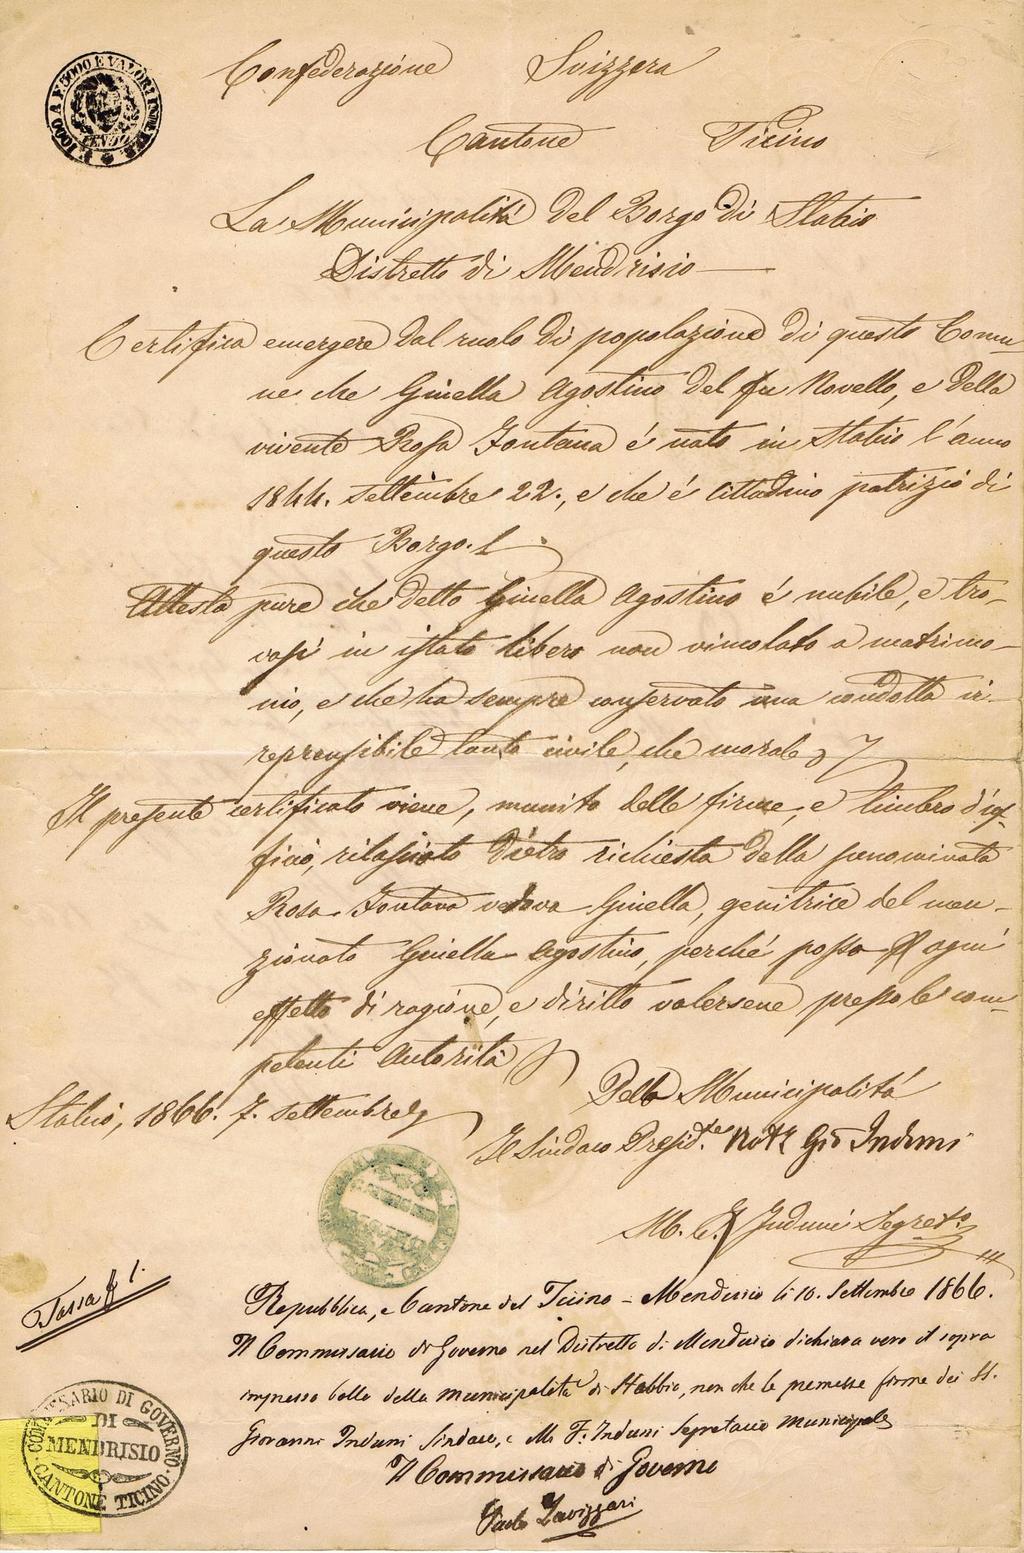 Confederazione Svizzera
Cantone Ticino
La Municipalità del Borgo di Stabio
Distretto di Mendrisio
Certifica emergere dal ruolo di popolazione di questo Comu-
ne che Ginella Agostino del fu Novello, e della
vivente Rosa Fontana é nato in Stabio l'anno
1844. settembre 22., e che é cittadino patrizio di
questo Borgo.
Attesta pure che detto Ginella Agostino é nubile, e tro-
vasi in istato libero non vincolato a matrimo-
nio, e che ha sempre conservato una condotta ir-
reprensibile tanto civile, che morale
Il presente certificato viene, munito delle firme, e timbro d'uf-
ficio, rilasciato dietro richiesta della prenominata
Rosa Fontana vedova Ginella, genitrice del men-
zionato Ginella Agostino, perché possa ogni
effetto di ragione, e diritto valersene presso le com-
petenti Autorità
Della Municipalità
Stabio, 1866. 7. settembre
Il Sindaco Presid.te Not.r Gio Induni
M. F. Induni Segret.o
Tassa f 1.
Repubblica, e Cantone del Ticino - Mendrisio li 10. Settembre 1866.
Il Commissario di Governo nel Distretto di Mendrisio dichiara vero il sopra
impresso bollo della municipalità di Stabbio, non che le premesse firme dei SS.
Giovanni Induni Sindaco, e M. F. Induni Segretario Municipale
Il Commissario di Governo
Paolo Lavizzari
COMMISSARIO DI GOVERNO
DI
MENDRISIO
CANTONE TICINO